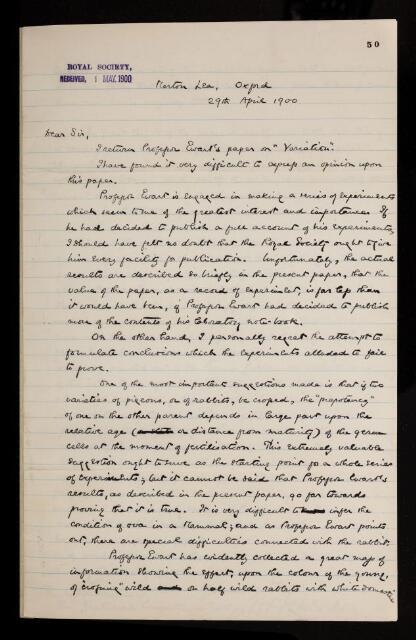 50
ROYAL SOCIETY,
RECEIVED, 1 MAY. 1900
Merton Lea, Oxford
29th April 1900
Dear Sir,
I return Professor Ewart's paper on "Variation".
I have found it very difficult to express an opinion upon
this paper.
Professor Ewart is engaged in making a series of experiments
which seem to me of the greatest interest and importance. If
he had decided to publish a full account of his experiments,
I should have felt no doubt that the Royal Society ought to give
him every facility for publication. Unfortunately, the actual
results are described so briefly in the present paper, that the
value of the paper, as a record of experiment, is far less than
it would have been, if Professor Ewart had decided to publish
more of the contents of his laboratory note-book.
On the other hand, I personally regret the attempt to
formulate conclusions which the experiments alluded to fail
to prove.
One of the most important suggestions made is that if two
varieties of pigeons, or of rabbits, be crossed, the "prepotency"
of one or the other parent depends in large part upon the
relative age (or distance from maturity) of the germ
cells at the moment of fertilisation. This extremely valuable
suggestion ought to serve as the starting point for a whole series
of experiments; but it cannot be said that Professor Ewart's
results, as described in the present paper, go far towards
proving that it is true. It is very difficult to infer the
condition of ova in a Mammal; and as Professor Ewart points
out, there are special difficulties connected with the rabbit.
Professor Ewart has evidently collected a great mass of
information showing the effect, upon the colour of the young,
of "crossing" wild or half wild rabbits with white domestic